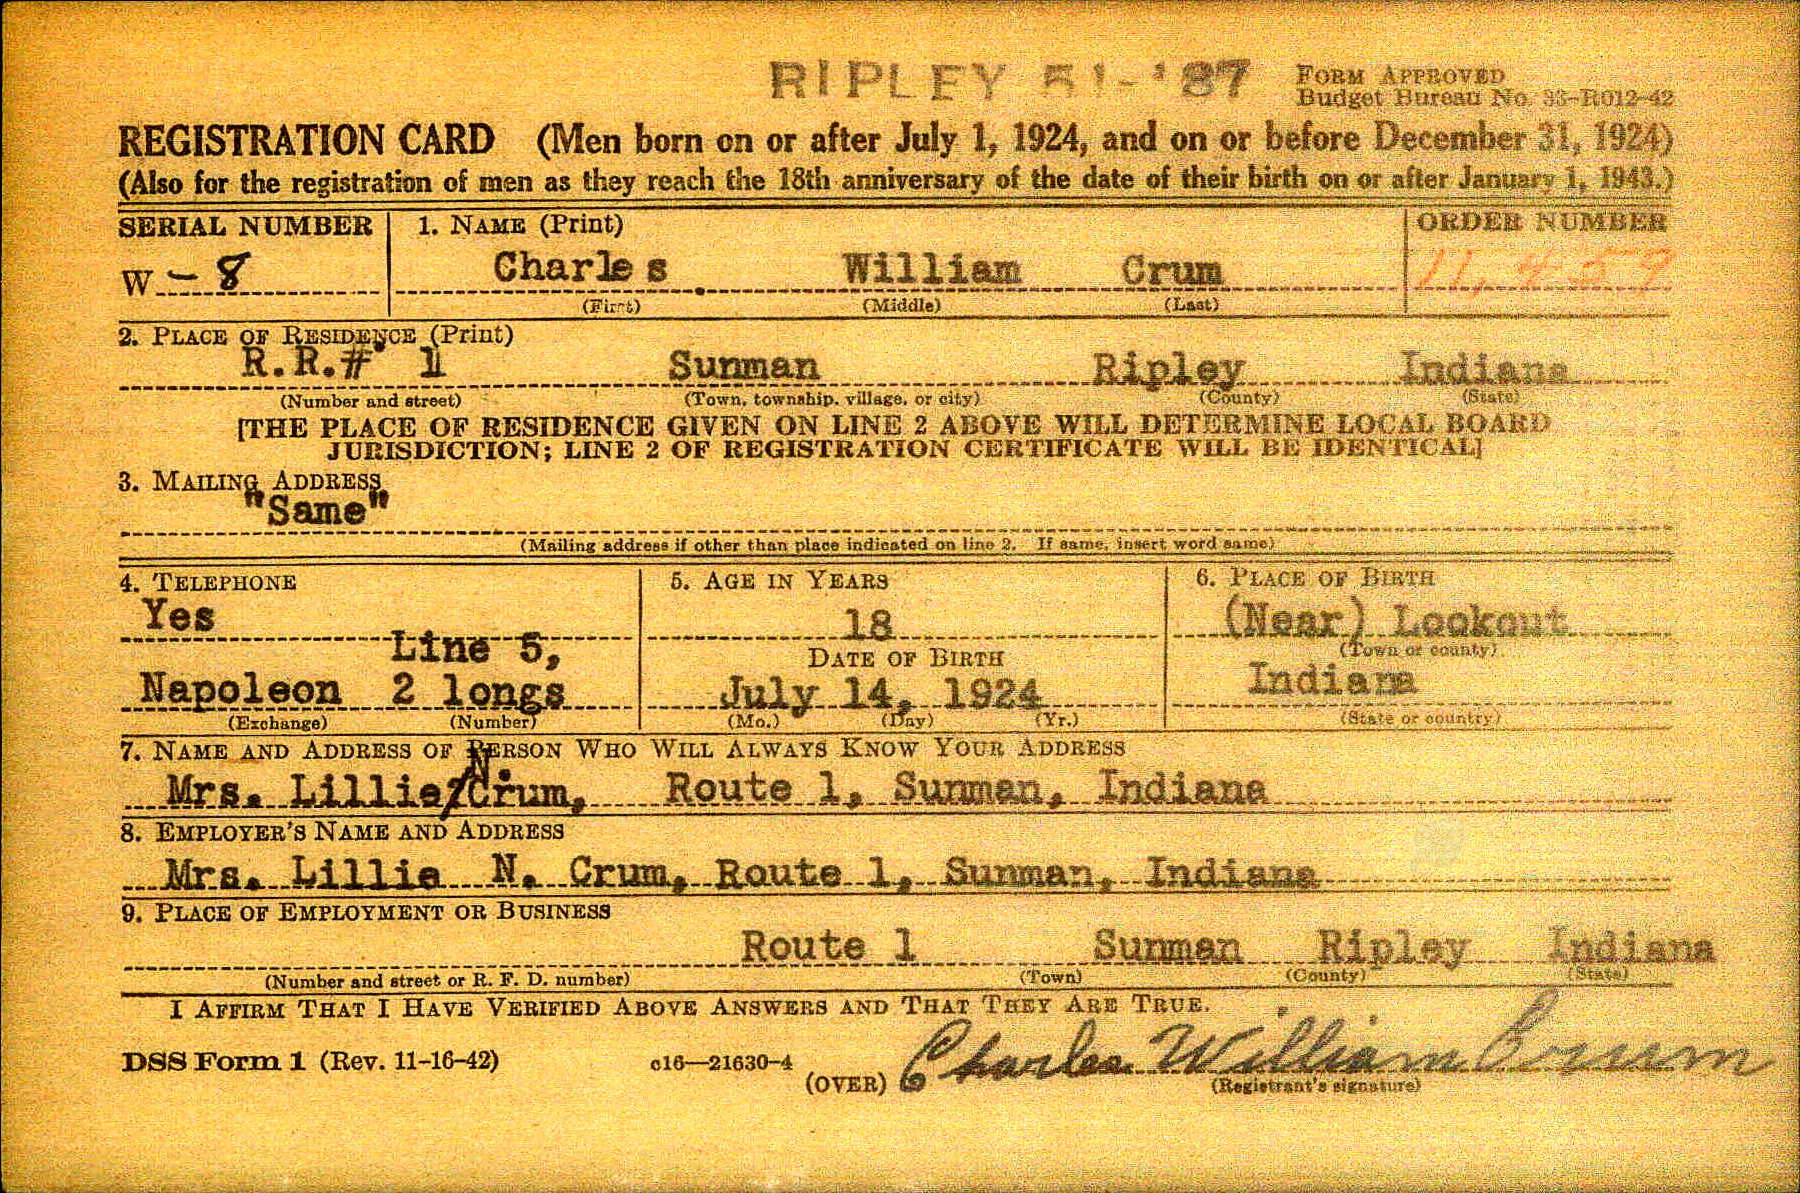 RIPLEY 51-'87
FORM APPROVED
Budget Bureau No. 33-R012-42
REGISTRATION CARD (Men born on or after July 1, 1924, and on or before December 31, 1924)
(Also for the registration of men as they reach the 18th anniversary of the date of their birth on or after January 1, 1943.)
SERIAL NUMBER 1. NAME (Print) ORDER NUMBER
W - 8 Charles William Crum 11,459
(First) (Middle) (Last)
2. PLACE OF RESIDENCE (Print)
R.R.# 1 Sunman Ripley Indiana
(Number and street) (Town, township, village, or city) (County) (State)
[THE PLACE OF RESIDENCE GIVEN ON LINE 2 ABOVE WILL DETERMINE LOCAL BOARD
JURISDICTION; LINE 2 OF REGISTRATION CERTIFICATE WILL BE IDENTICAL]
3. MAILING ADDRESS
"Same"
(Mailing address if other than place indicated on line 2. If same, insert word same)
4. TELEPHONE 5. AGE IN YEARS 6. PLACE OF BIRTH
Yes 18 (Near) Lookout
(Town or county)
Line 5, DATE OF BIRTH Indiana
Napoleon 2 longs July 14, 1924
(Exchange) (Number) (Mo.) (Day) (Yr.) (State or country)
7. NAME AND ADDRESS OF PERSON WHO WILL ALWAYS KNOW YOUR ADDRESS
Mrs. Lillie N. Crum, Route 1, Sunman, Indiana
8. EMPLOYER'S NAME AND ADDRESS
Mrs. Lillie N. Crum, Route 1, Sunman, Indiana
9. PLACE OF EMPLOYMENT OR BUSINESS
Route 1 Sunman Ripley Indiana
(Number and street or R. F. D. number) (Town) (County) (State)
I AFFIRM THAT I HAVE VERIFIED ABOVE ANSWERS AND THAT THEY ARE TRUE.
DSS Form 1 (Rev. 11-16-42) c16—21630-4 (OVER) Charles William Crum
(Registrant's signature)